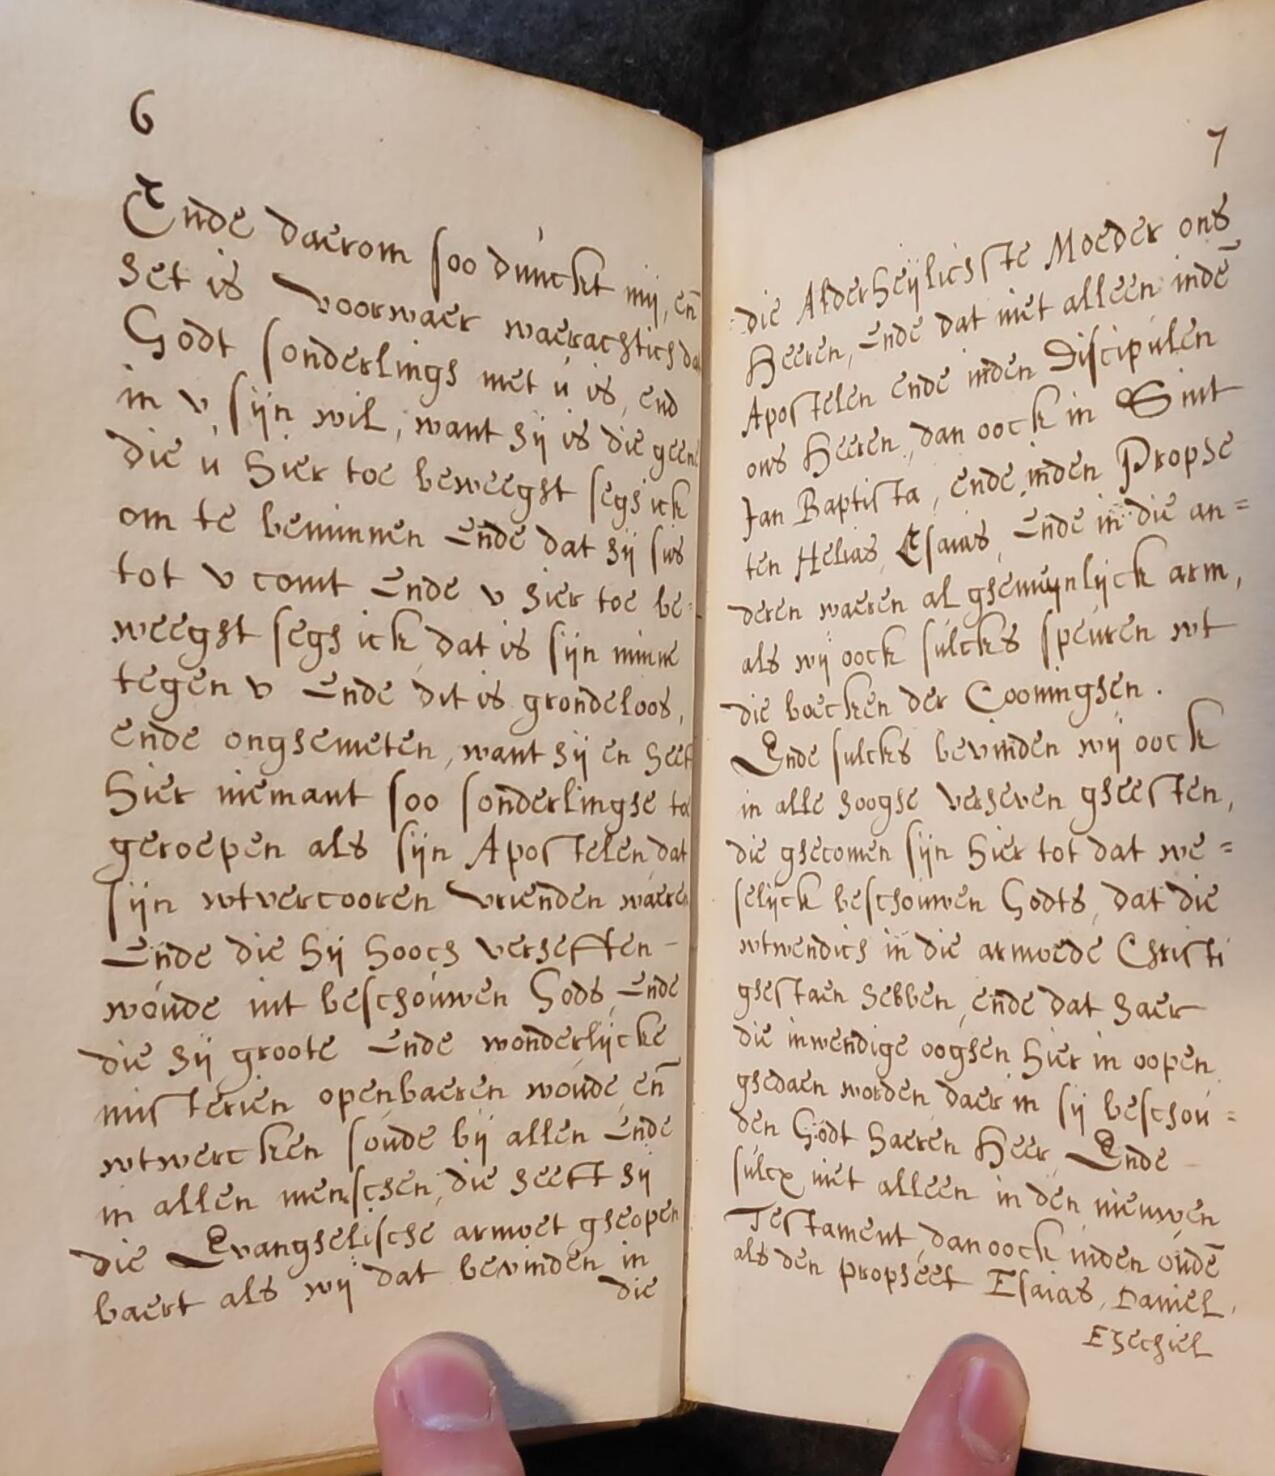 6
Ende daerom soo dunckt mij, en̄
het is voorwaer waerachtich da
Godt sonderlings met ú is, end
in v, sijn wil, want hij is die geen
die ú hier toe beweeght segh ick
om te beminnen Ende dat hij sus
tot v comt Ende v hier toe be=
weeght segh ick, dat is sijn minne
tegen v Ende dit is grondeloos,
ende onghemeten, want hij en heef
hier niemant soo sonderlinghe to
geroepen als sijn Apostelen dat
sijn wtvercooren vrienden waere
Ende die hij hooch verhefften
woude int beschouwen Gods, Ende
die hij groote Ende wonderlijcke
misterien openbaeren woude, en̄
wtwercken soude bij allen Ende
in allen menschen, die heeft hij
die Evanghelische armoet gheopen
baert als wij dat bevinden in
die
7
die Alderheijlichste Moeder ons
Heeren, Ende dat niet alleen indē
Apostelen ende inden Discipulen
ons Heeren, dan oock in Sint
Jan Baptista, ende inden Prophe
ten Helias, Esaias, Ende in die an=
deren waeren al ghemeynlijck arm,
als wij oock sulcks speuren wt
die boecken der Cooninghen.
Ende sulcks bevinden wij oock
in alle hooghe verheven gheesten,
die ghecomen sijn hier tot dat we=
selijck beschouwen Godts, dat die
wtwendich in die armoede Christi
ghestaen hebben, ende dat haer
die inwendige ooghen hier in oopen
ghedaen worden, daer in sij beschou=
den Godt haeren Heer, Ende
sulcx niet alleen in den nieuwen
Testament, dan oock inden oudē
als den propheet Esaias, Daniel,
Ezechiel